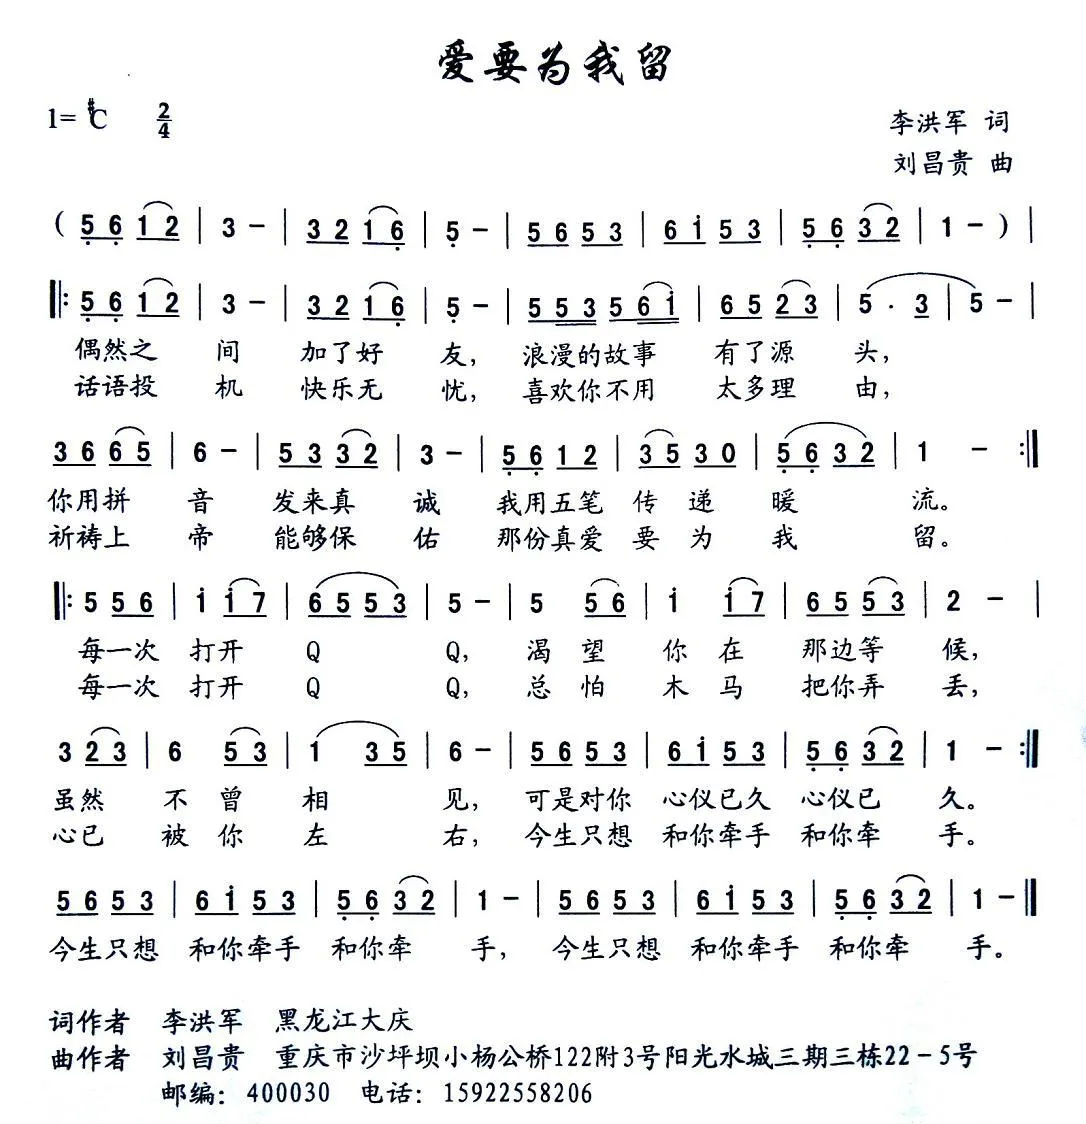 爱要为我留
1= #C 2/4
李洪军 词
刘昌贵 曲
( 5 6 1 2 | 3 - | 3 2 1 6 | 5 - | 5 6 5 3 | 6 i 5 3 | 5 6 3 2 | 1 - ) |
‖: 5 6 1 2 | 3 - | 3 2 1 6 | 5 - | 5 5 3 5 6 i | 6 5 2 3 | 5 . 3 | 5 - |
偶然之 间 加了好 友, 浪漫的故事 有了源 头,
话语投 机 快乐无 忧, 喜欢你不用 太多理 由,
3 6 6 5 | 6 - | 5 3 3 2 | 3 - | 5 6 1 2 | 3 5 3 0 | 5 6 3 2 | 1 - :‖
你用拼 音 发来真 诚 我用五笔 传 递 暖 流。
祈祷上 帝 能够保 佑 那份真爱 要 为 我 留。
‖: 5 5 6 | i i 7 | 6 5 5 3 | 5 - | 5 5 6 | i i 7 | 6 5 5 3 | 2 - |
每一次 打开 Q Q, 渴 望 你 在 那边等 候,
每一次 打开 Q Q, 总 怕 木 马 把你弄 丢,
3 2 3 | 6 5 3 | 1 3 5 | 6 - | 5 6 5 3 | 6 i 5 3 | 5 6 3 2 | 1 - :‖
虽然 不 曾 相 见, 可是对你 心仪已久 心仪已 久。
心已 被 你 左 右, 今生只想 和你牵手 和你牵 手。
5 6 5 3 | 6 i 5 3 | 5 6 3 2 | 1 - | 5 6 5 3 | 6 i 5 3 | 5 6 3 2 | 1 - ‖
今生只想 和你牵手 和你牵 手, 今生只想 和你牵手 和你牵 手。
词作者 李洪军 黑龙江大庆
曲作者 刘昌贵 重庆市沙坪坝小杨公桥122附3号阳光水城三期三栋22-5号
邮编：400030 电话：15922558206